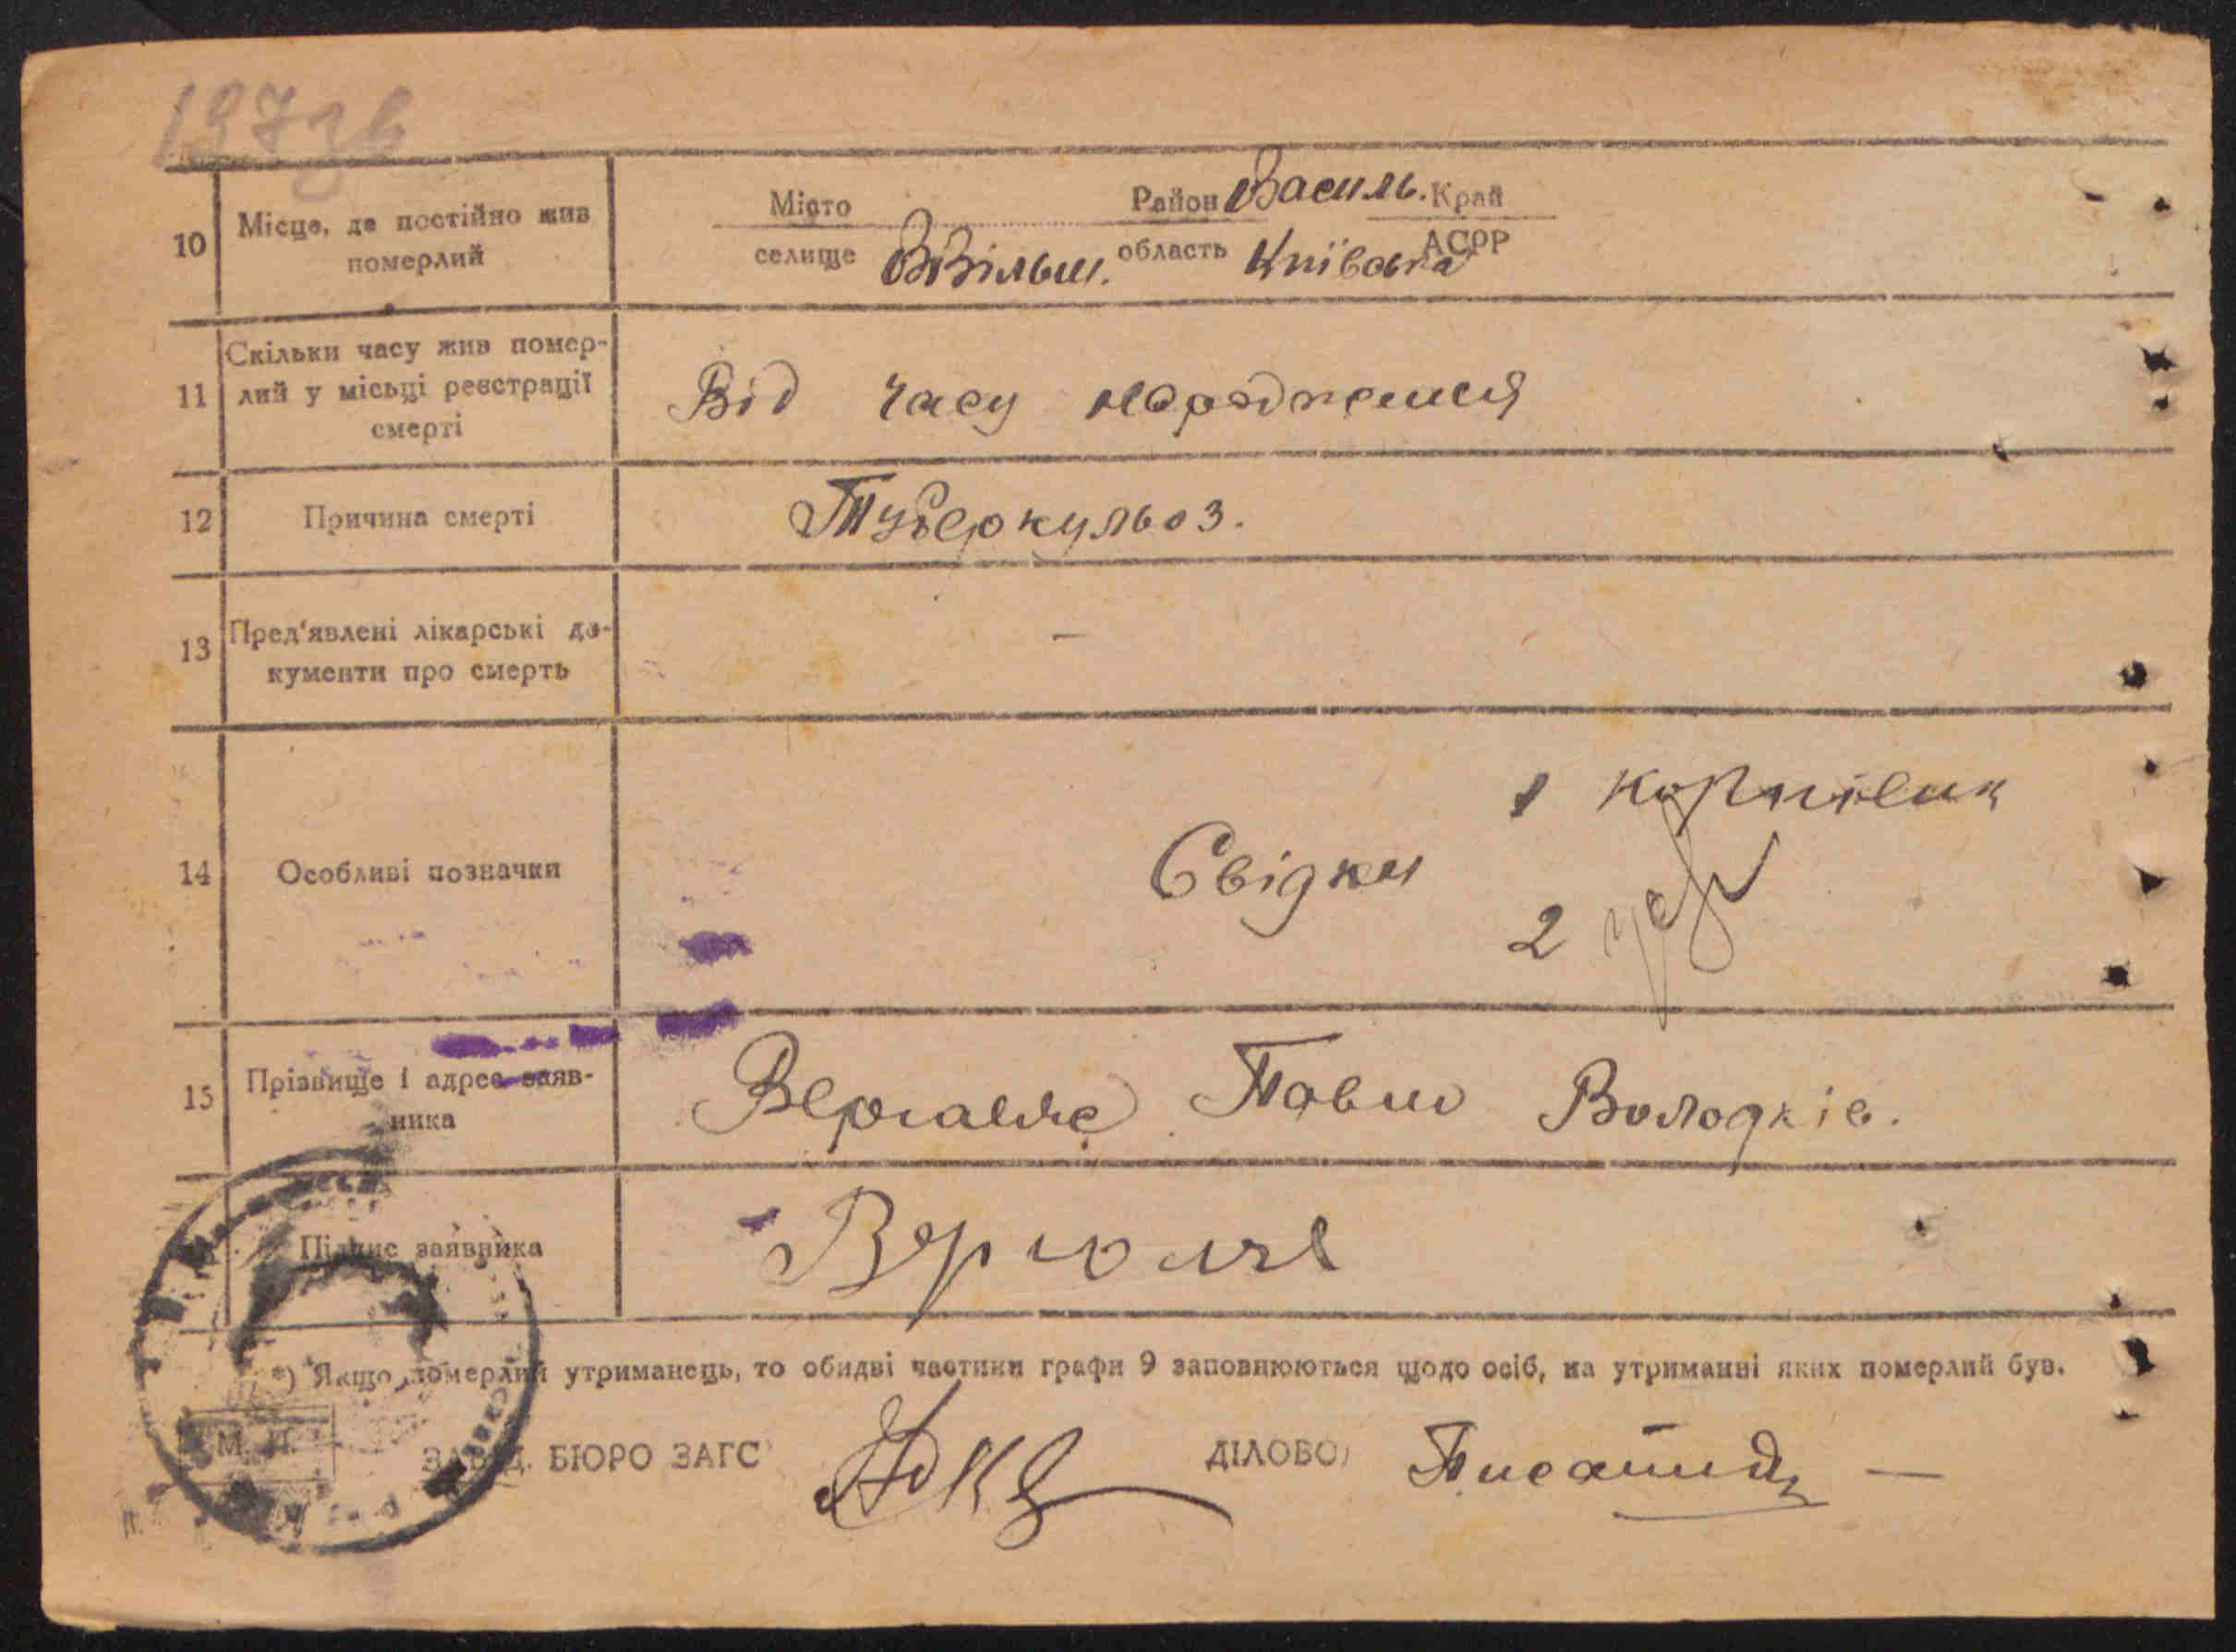 197зв
10 Місце, де постійно жив померлий
Місто Район Василь. Край
селище ВВільш. область Київська АСРР
11 Скільки часу жив помер-
лий у місьці реєстрації
смерті
Від часу народження
12 Причина смерті
Туберкульоз.
13 Пред'явлені лікарські до-
кументи про смерть
—
14 Особливі позначки
Свідки
1 Корнієнк
2
15 Прізвище і адрес заяв-
ника
Павло Володків.
Підпис заявника
*) Якщо померлий утриманець, то обидві частини графи 9 заповнюються щодо осіб, на утриманні яких померлий був.
М. П.
ЗАВІД. БЮРО ЗАГС
ДІЛОВОД